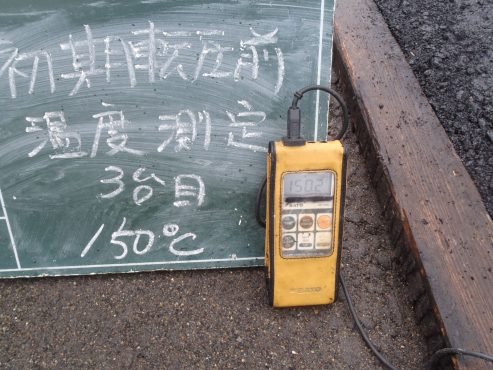 初期転圧前
温度測定
3台目
150℃
150.2
SATO